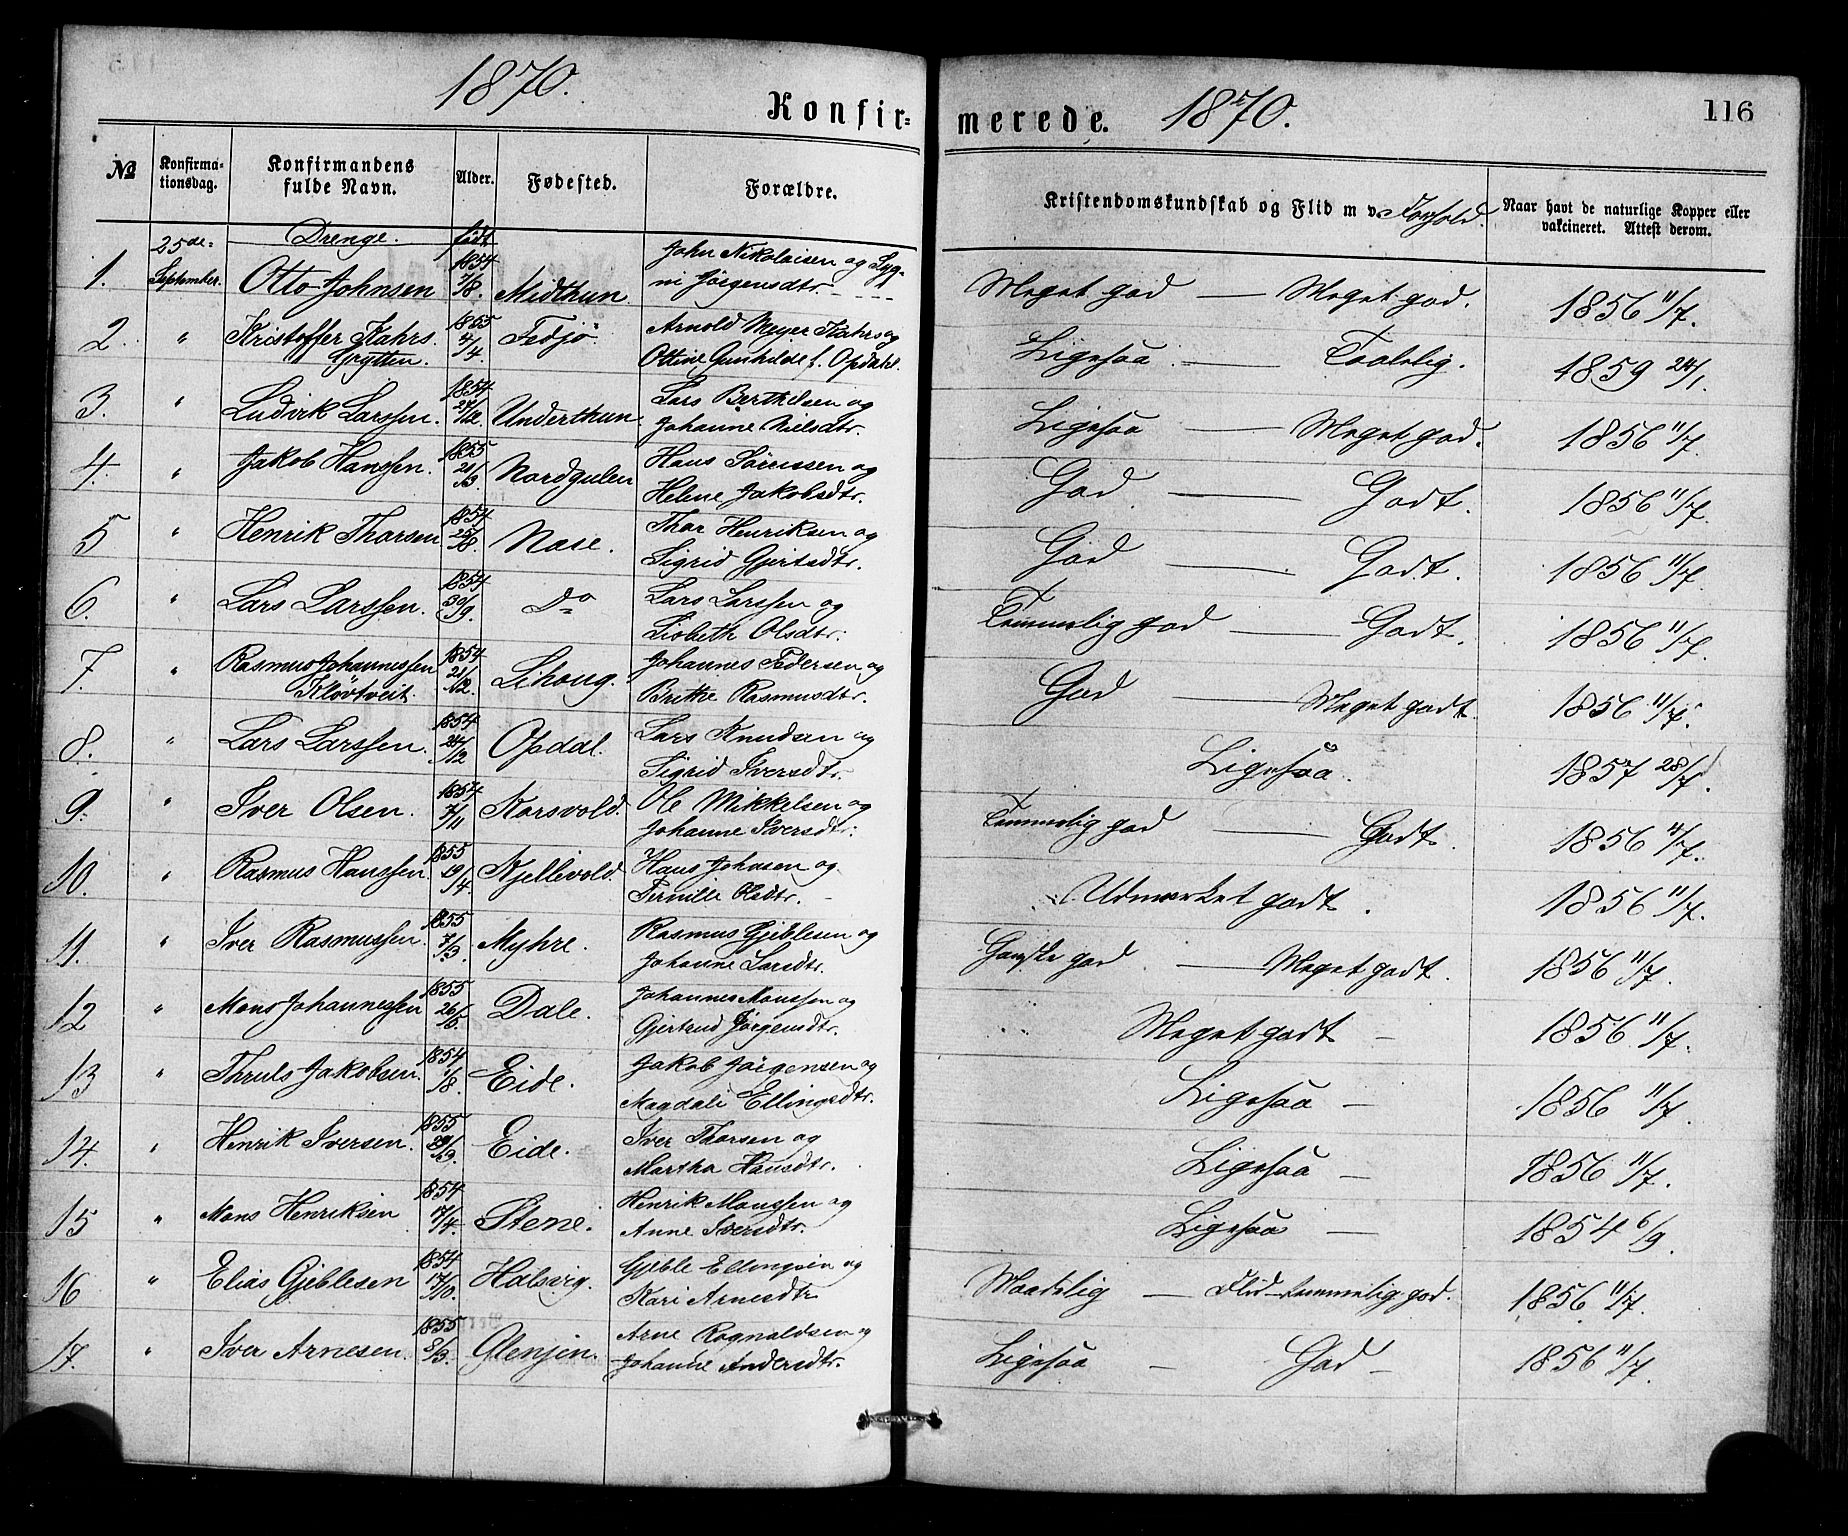 1870. Konfir= merede. 1870. 116
№ Konfirma-tionsdag. Konfirmandens fulde Navn. Alder. Fødested. Forældre. Kristendomskundskab og Flid m v. Forhold. Naar havt de naturlige Kopper eller vakcineret. Attest derom.
25de= Drenge. født
1. September Otto Johnsen 1854 7/8. Midthun John Nikolaisen og Syg-ni Jörgensdtr. Meget god — Meget god. 1856 11/7.
2. " Kristoffer Kahrs Grytten. 1855 4/4 Fedjö Arnold Meyer Kahrs og Ottine Gunhilde f. Opdahl. Ligesaa — Taalelig. 1859 24/1.
3. " Ludvik Larssen. 1854 27/12. Underthun Lars Berthelsen og Johanne Nielsdtr. Ligesaa — Meget god. 1856 11/7.
4. " Jakob Hanssen. 1855 21/3. Nordgulen Hans Sörenssen og Helene Jakobsdtr. God — Godt. 1856 11/7.
5 " Henrik Thorsen 1854 25/8. Nose. Thor Henriksen og Sigrid Gjertsdtr. God — Godt. 1856 11/7.
6. " Lars Larssen. 1854 30/9. Do Lars Larssen og Lisbeth Olsdtr. Temmelig god — Godt. 1856 11/7.
7. " Rasmus Johannessen Klövtveit 1854 21/12. Lihoug. Johannes Pedersen og Brithe Rasmusdtr. God — Meget godt. 1856 11/7.
8. " Lars Larssen. 1854 24/12 Opdal. Lars Knudsen og Sigrid Iversdtr. Ligesaa. 1857 28/7.
9. " Iver Olsen. 1854 7/11 Korsvold. Ole Mikkelsen og Johanne Iversdtr. Temmelig god — Godt. 1856 11/7.
10. " Rasmus Hanssen 1855 19/4 Kjellevold. Hans Johnsen og Pernille Olsdtr. Udmærket godt. 1856 11/7.
11. " Iver Rasmussen. 1855 7/3. Myhre. Rasmus Gjeblesen og Johanne Larsdtr. Ganske god — Meget godt. 1856 11/7.
12 " Mons Johannessen 1855 Dale. Johannes Monssen og Gjertrud Jörgensdtr. Meget godt — 1856 11/7.
13 " Thruls Jakobsen. 1854 1/8. Eide. Jakob Jörgensen og Magdali Ellingsdtr. Ligesaa — 1856 11/7.
14. " Henrik Iversen. 1855 Eide. Iver Thorsen og Martha Hansdtr. Ligesaa — 1856 11/7.
15 " Mons Henriksen 1854 17/4. Stene. Henrik Monssen og Anne Iversdtr. Ligesaa — 1854 6/9.
16 " Elias Gjeblesen 1854 17/10. Halsvig. Gjeble Ellingsen og Kari Arnesdtr Maadelig — Flid temmelig god. 1856 11/7.
17. " Iver Arnesen. 1855 8/3. Glenjen. Arne Rognaldsen og Johanne Andersdtr. Ligesaa — God — 1856 11/7.